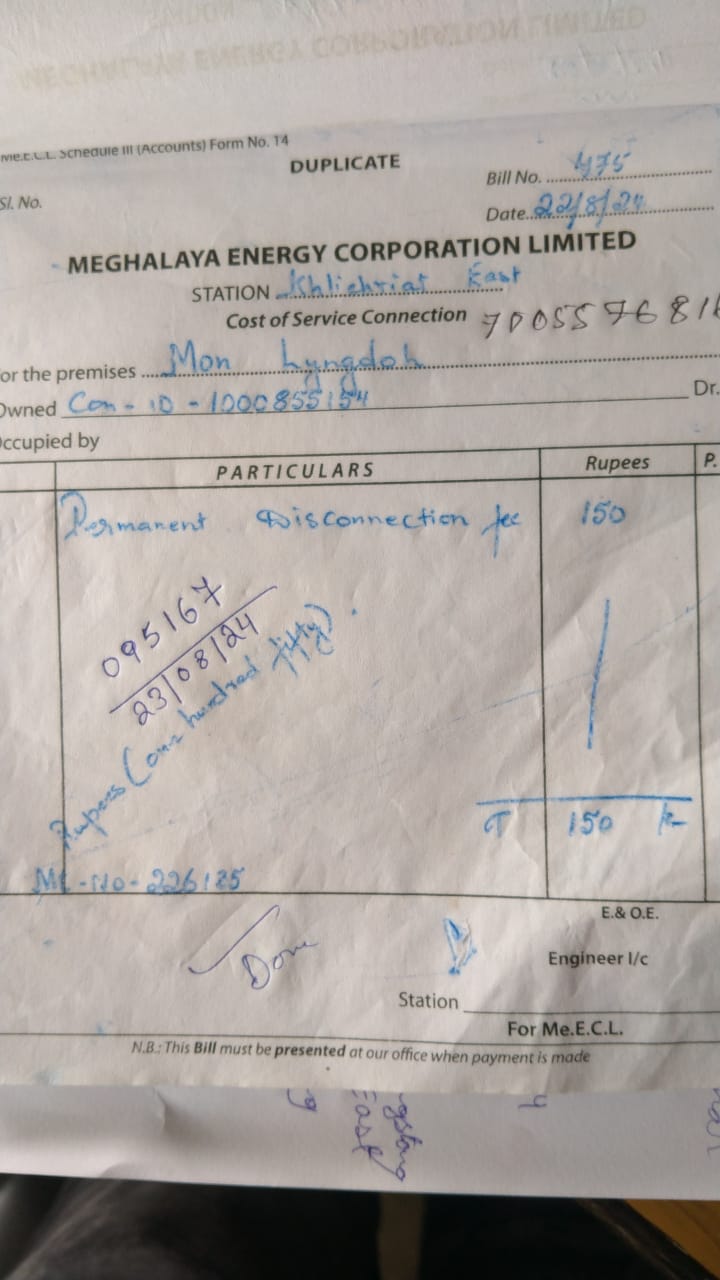 Me.E.C.L. Schedule III (Accounts) Form No. 14
DUPLICATE
Bill No. 475
Sl. No.
Date 22/8/24
MEGHALAYA ENERGY CORPORATION LIMITED
STATION Khliehriat East
Cost of Service Connection
For the premises Mon Lyngdoh
Owned Con - ID - 1000855154
Dr.
Occupied by
PARTICULARS Rupees P.
Permanent Disconnection fee 150
095167
23/08/24
Rupees (one hundred fifty).
T 150
Mt - No - 226185
E.& O.E.
Done
Engineer I/c
Station
For Me.E.C.L.
N.B.: This Bill must be presented at our office when payment is made